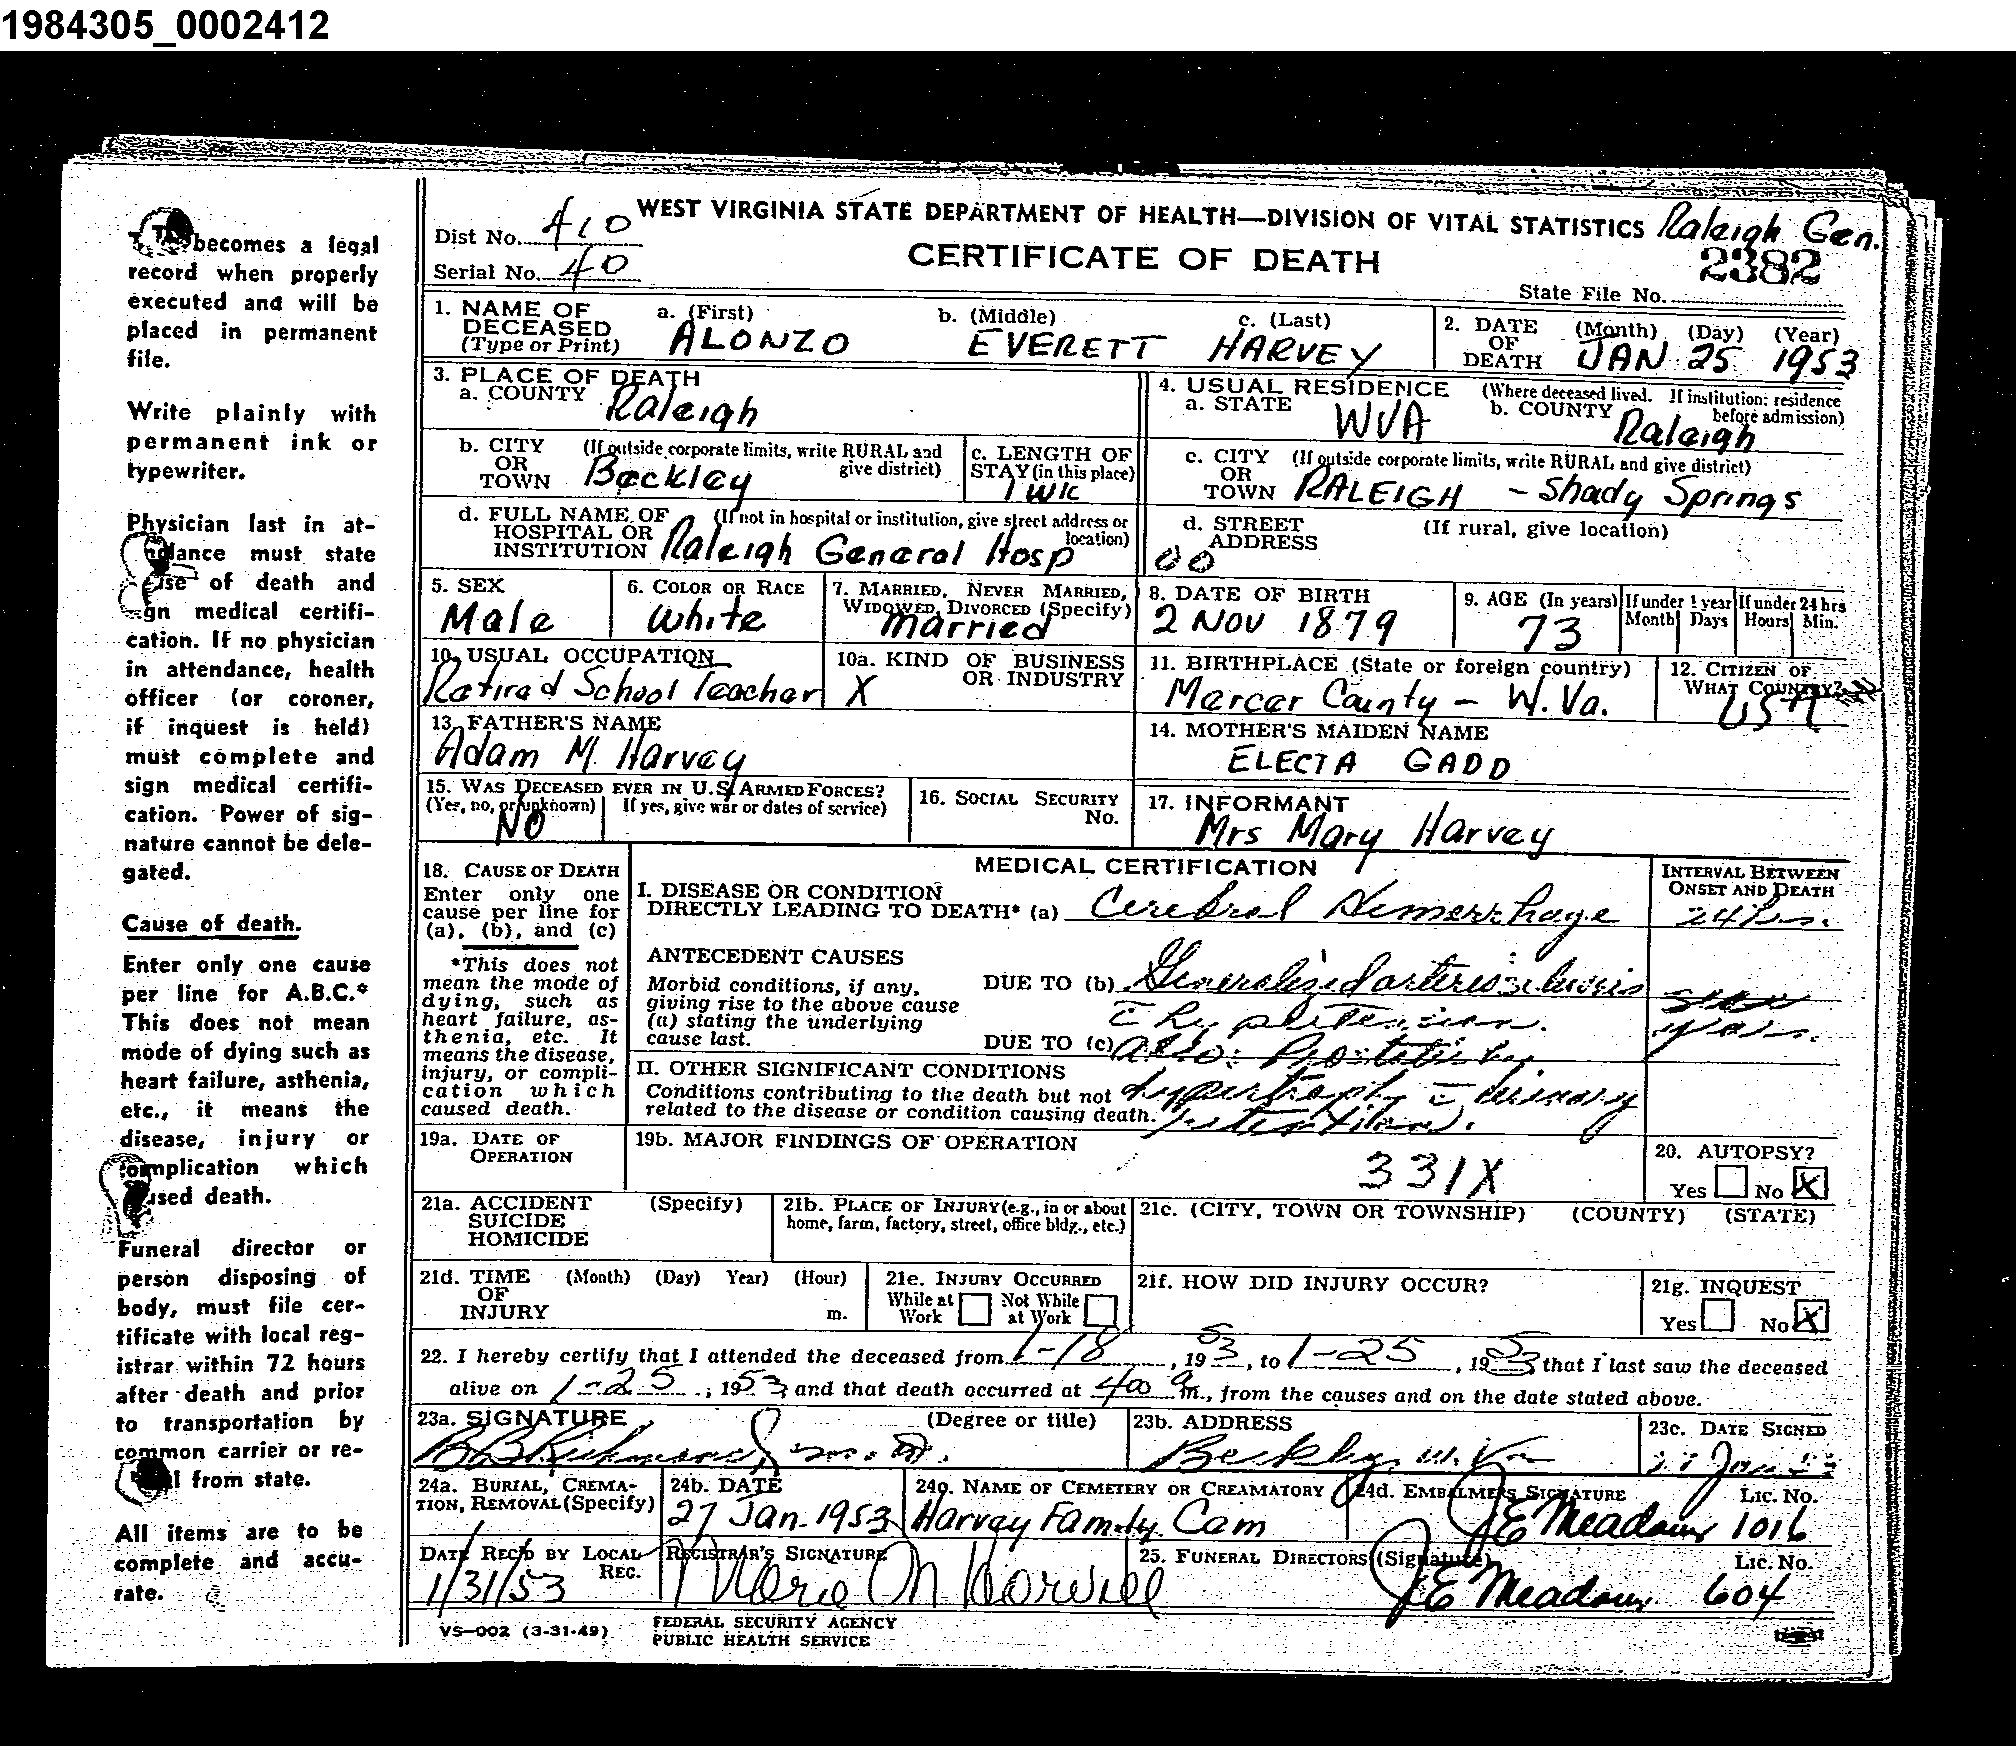 1984305_0002412
becomes a legal
record when properly
executed and will be
placed in permanent
file.
Write plainly with
permanent ink or
typewriter.
Physician last in at-
dance must state
of death and
gn medical certifi-
cation. If no physician
in attendance, health
officer (or coroner,
if inquest is held)
must complete and
sign medical certifi-
cation. Power of sig-
nature cannot be dele-
gated.
Cause of death.
Enter only one cause
per line for A.B.C.*
This does not mean
mode of dying such as
heart failure, asthenia,
etc., it means the
disease, injury or
omplication which
used death.
Funeral director or
person disposing of
body, must file cer-
tificate with local reg-
istrar within 72 hours
after death and prior
to transportation by
common carrier or re-
l from state.
All items are to be
complete and accu-
rate.
WEST VIRGINIA STATE DEPARTMENT OF HEALTH—DIVISION OF VITAL STATISTICS Raleigh Gen.
Dist No. 410
CERTIFICATE OF DEATH 2382
Serial No. 40
State File No.
1. NAME OF DECEASED (Type or Print) a. (First) ALONZO b. (Middle) EVERETT c. (Last) HARVEY
2. DATE OF DEATH (Month) (Day) (Year) JAN 25 1953
3. PLACE OF DEATH
a. COUNTY Raleigh
4. USUAL RESIDENCE (Where deceased lived. If institution: residence before admission)
a. STATE WVA b. COUNTY Raleigh
b. CITY OR TOWN (If outside corporate limits, write RURAL and give district) Beckley
c. LENGTH OF STAY (in this place) 1 WK
c. CITY OR TOWN (If outside corporate limits, write RURAL and give district) RALEIGH - Shady Springs
d. FULL NAME OF HOSPITAL OR INSTITUTION (If not in hospital or institution, give street address or location) Raleigh General Hosp
d. STREET ADDRESS (If rural, give location) 00
5. SEX Male
6. COLOR OR RACE White
7. MARRIED, NEVER MARRIED, WIDOWED, DIVORCED (Specify) Married
8. DATE OF BIRTH 2 NOV 1879
9. AGE (In years) 73 If under 1 year Month Days If under 24 hrs Hours Min.
10. USUAL OCCUPATION Retired School Teacher
10a. KIND OF BUSINESS OR INDUSTRY X
11. BIRTHPLACE (State or foreign country) Mercer County - W.Va.
12. CITIZEN OF WHAT COUNTRY? USA
13. FATHER'S NAME Adam M. Harvey
14. MOTHER'S MAIDEN NAME ELECTA GADD
15. WAS DECEASED EVER IN U.S. ARMED FORCES?
(Yes, no, or unknown) NO If yes, give war or dates of service)
16. SOCIAL SECURITY No.
17. INFORMANT Mrs Mary Harvey
18. CAUSE OF DEATH
Enter only one
cause per line for
(a), (b), and (c)
*This does not
mean the mode of
dying, such as
heart failure, as-
thenia, etc. It
means the disease,
injury, or compli-
cation which
caused death.
MEDICAL CERTIFICATION
INTERVAL BETWEEN ONSET AND DEATH
I. DISEASE OR CONDITION
DIRECTLY LEADING TO DEATH* (a) Cerebral Hemorrhage 24 hrs.
ANTECEDENT CAUSES
Morbid conditions, if any,
giving rise to the above cause
(a) stating the underlying
cause last.
DUE TO (b) Generalized arteriosclerosis
c̄ hypertension. years.
DUE TO (c) also: Prostatic
II. OTHER SIGNIFICANT CONDITIONS
Conditions contributing to the death but not
related to the disease or condition causing death.
hypertrophy c̄ urinary
retention.
19a. DATE OF OPERATION
19b. MAJOR FINDINGS OF OPERATION 331X
20. AUTOPSY? Yes No X
21a. ACCIDENT SUICIDE HOMICIDE (Specify)
21b. PLACE OF INJURY (e.g., in or about home, farm, factory, street, office bldg., etc.)
21c. (CITY, TOWN OR TOWNSHIP) (COUNTY) (STATE)
21d. TIME OF INJURY (Month) (Day) Year) (Hour) m.
21e. INJURY OCCURRED While at Work Not While at Work
21f. HOW DID INJURY OCCUR?
21g. INQUEST Yes No X
22. I hereby certify that I attended the deceased from 1-18, 1953, to 1-25, 1953, that I last saw the deceased
alive on 1-25, 1953 and that death occurred at 400 a m., from the causes and on the date stated above.
23a. SIGNATURE (Degree or title) B B Richmond m.d.
23b. ADDRESS Beckley, W. Va
23c. DATE SIGNED 27 Jan 53
24a. BURIAL, CREMATION, REMOVAL (Specify)
24b. DATE 27 Jan. 1953
24c. NAME OF CEMETERY OR CREAMATORY Harvey Family Cem
24d. EMBALMER'S SIGNATURE J E Meadows LIC. NO. 1016
DATE REC'D BY LOCAL REG. 1/31/53
REGISTRAR'S SIGNATURE
25. FUNERAL DIRECTORS (Signature) J E Meadows LIC. NO. 604
VS-002 (3-31-49)
FEDERAL SECURITY AGENCY
PUBLIC HEALTH SERVICE